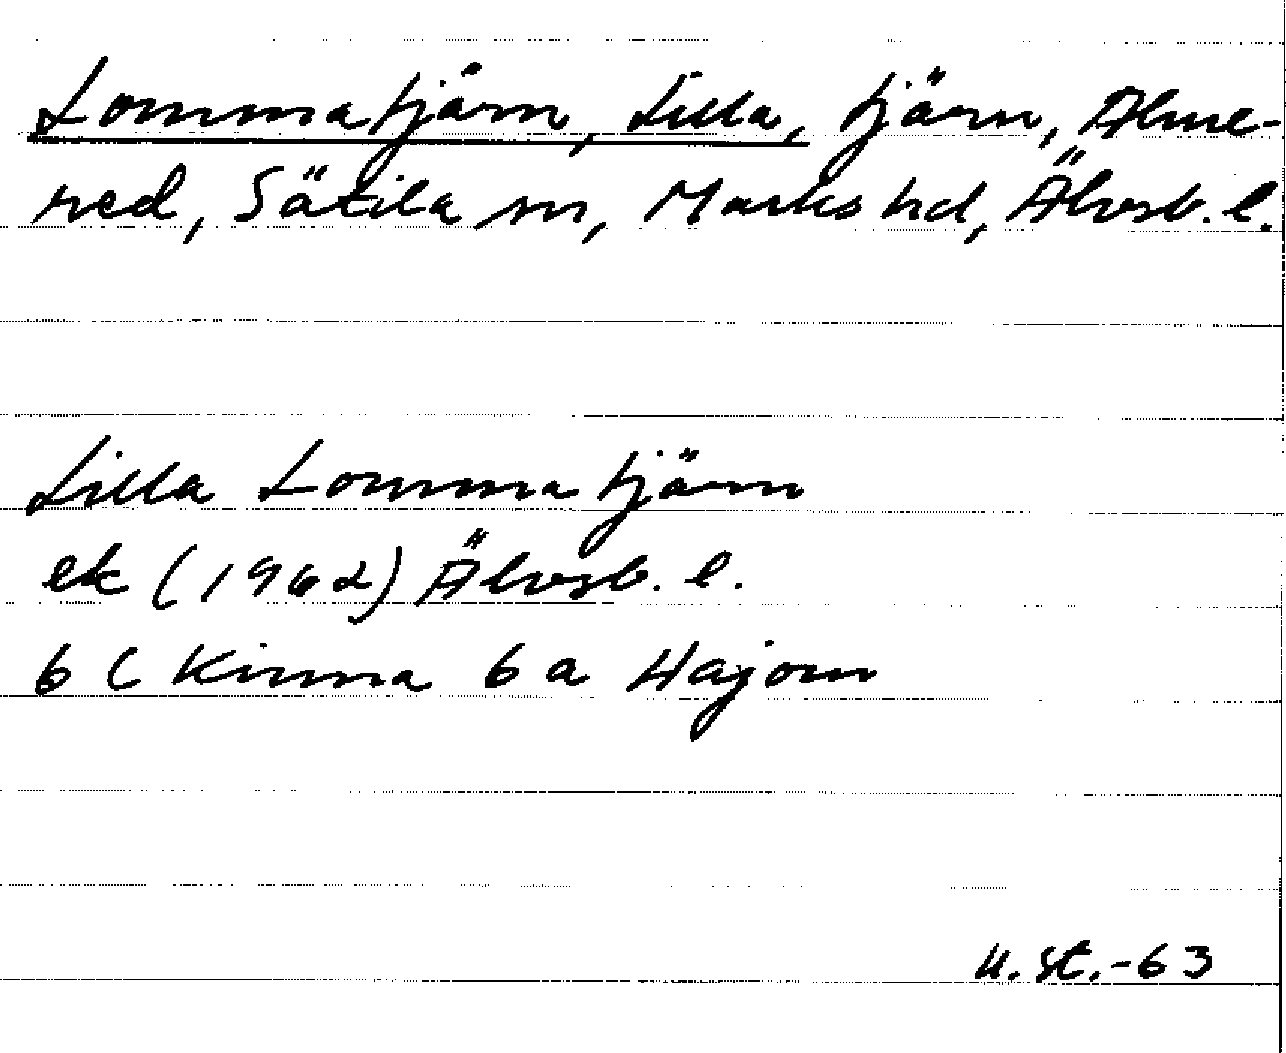 Lommatjärn, Lilla, tjärn, Alme-
red, Sätila sn, Marks hd, Älvsb. l.
Lilla Lommatjärn
ek (1962) Älvsb. l.
6 C Kinna 6 a Hajom
U. St. -63